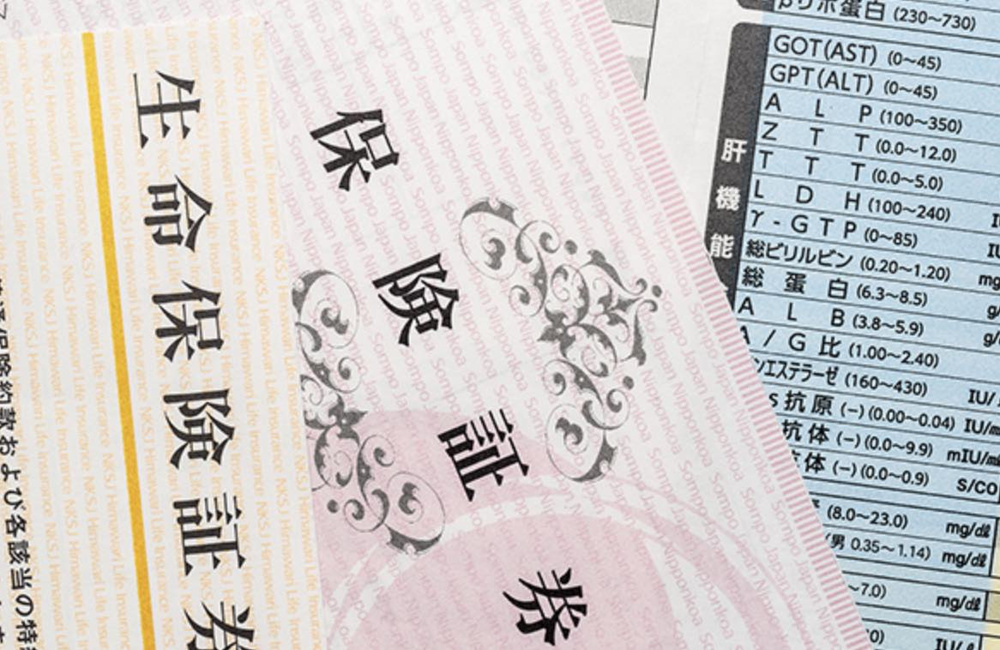 生命保険証券
保険証券
普通保険約款および各該当の特
NKSJ Himawari Life Insurance
Sompo Japan Nipponkoa
βリポ蛋白 (230〜730)
肝機能
GOT(AST) (0〜45)
GPT(ALT) (0〜45)
ALP (100〜350)
ZTT (0.0〜12.0)
TTT (0.0〜5.0)
LDH (100〜240)
γ-GTP (0〜85)
総ビリルビン (0.20〜1.20) mg
総蛋白 (6.3〜8.5) g/
ALB (3.8〜5.9) g/
A/G比 (1.00〜2.40)
ンエステラーゼ (160〜430) IU/
S抗原 (-) (0.00〜0.04) IU/m
抗体 (-) (0.0〜9.9) mIU/m
抗体 (-) (0.0〜0.9) S/CO
(8.0〜23.0) mg/dℓ
(男 0.35〜1.14) mg/dℓ
〜7.0) mg/dℓ
0) IU/ℓ